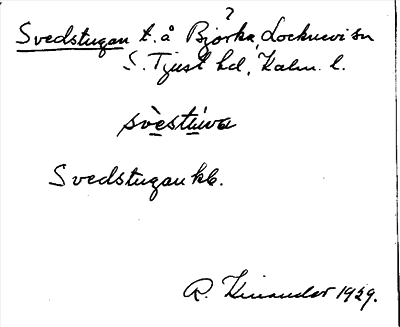 ?
Svedstugan t. å Björka, Locknevi sn
S. Tjust hd, Kalm. l.
svèstúva
Svedstugan kb.
R. Kinander 1929.